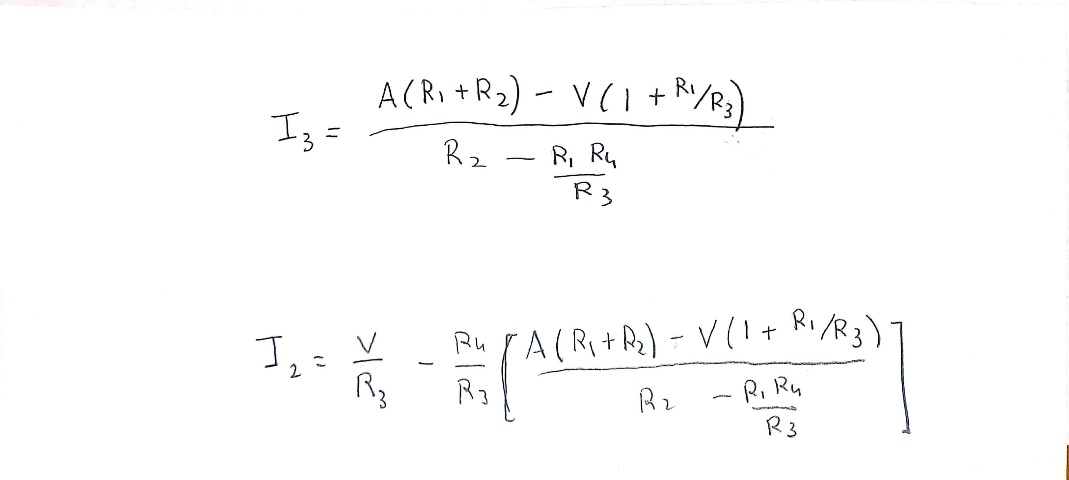 I₃ = (A(R₁ + R₂) - V(1 + R₁/R₃)) / (R₂ - (R₁ R₄)/R₃)
I₂ = V/R₃ - R₄/R₃ [(A(R₁ + R₂) - V(1 + R₁/R₃)) / (R₂ - (R₁ R₄)/R₃)]